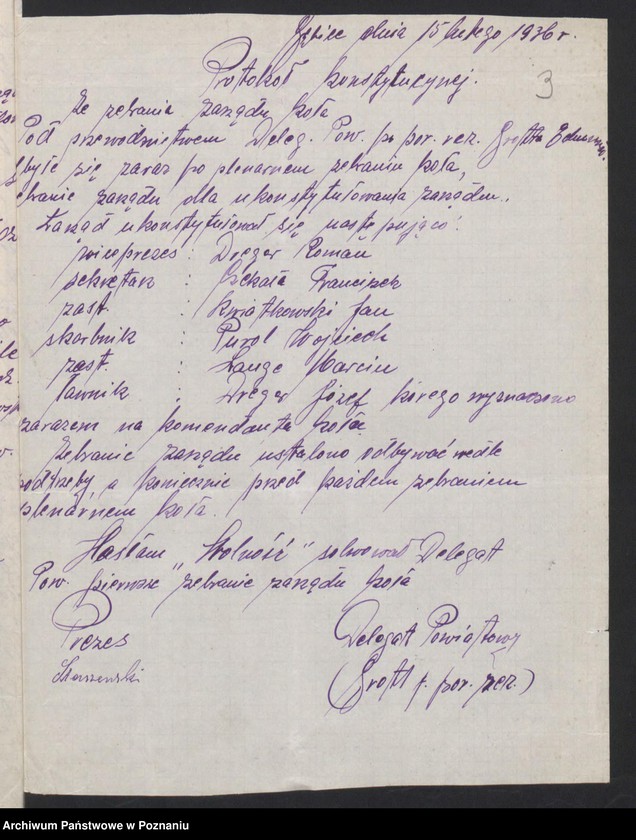 dnia 15 lutego 1936 r.
3
Protokół konstytucyjnej.
Ze zebrania zarządu koła
Pod przewodnictwem Deleg. Pow. p. por. rez.
było się zaraz po plenarnem zebraniu koła,
ebranie zarządu dla ukonstytuowania zarządu.
Zarząd ukonstytuował się następująco:
wiceprezes : Dreger Roman
sekretarz : Franciszek
zast. : Kwiatkowski Jan
skarbnik : Purol Wojciech
zast. : Lange Marcin
ławnik : Dreger Józef kórego wyznaczono
zarazem na komendanta koła.
Zebranie zarządu ustalono odbywać wedle
potrzeby, a koniecznie przed każdem zebraniem
plenarnem koła.
Hasłem „Wolność" Delegat
Pow. pierwsze zebranie zarządu koła
Prezes
Delegat Powiatowy
( p. por. rez.)
Archiwum Państwowe w Poznaniu